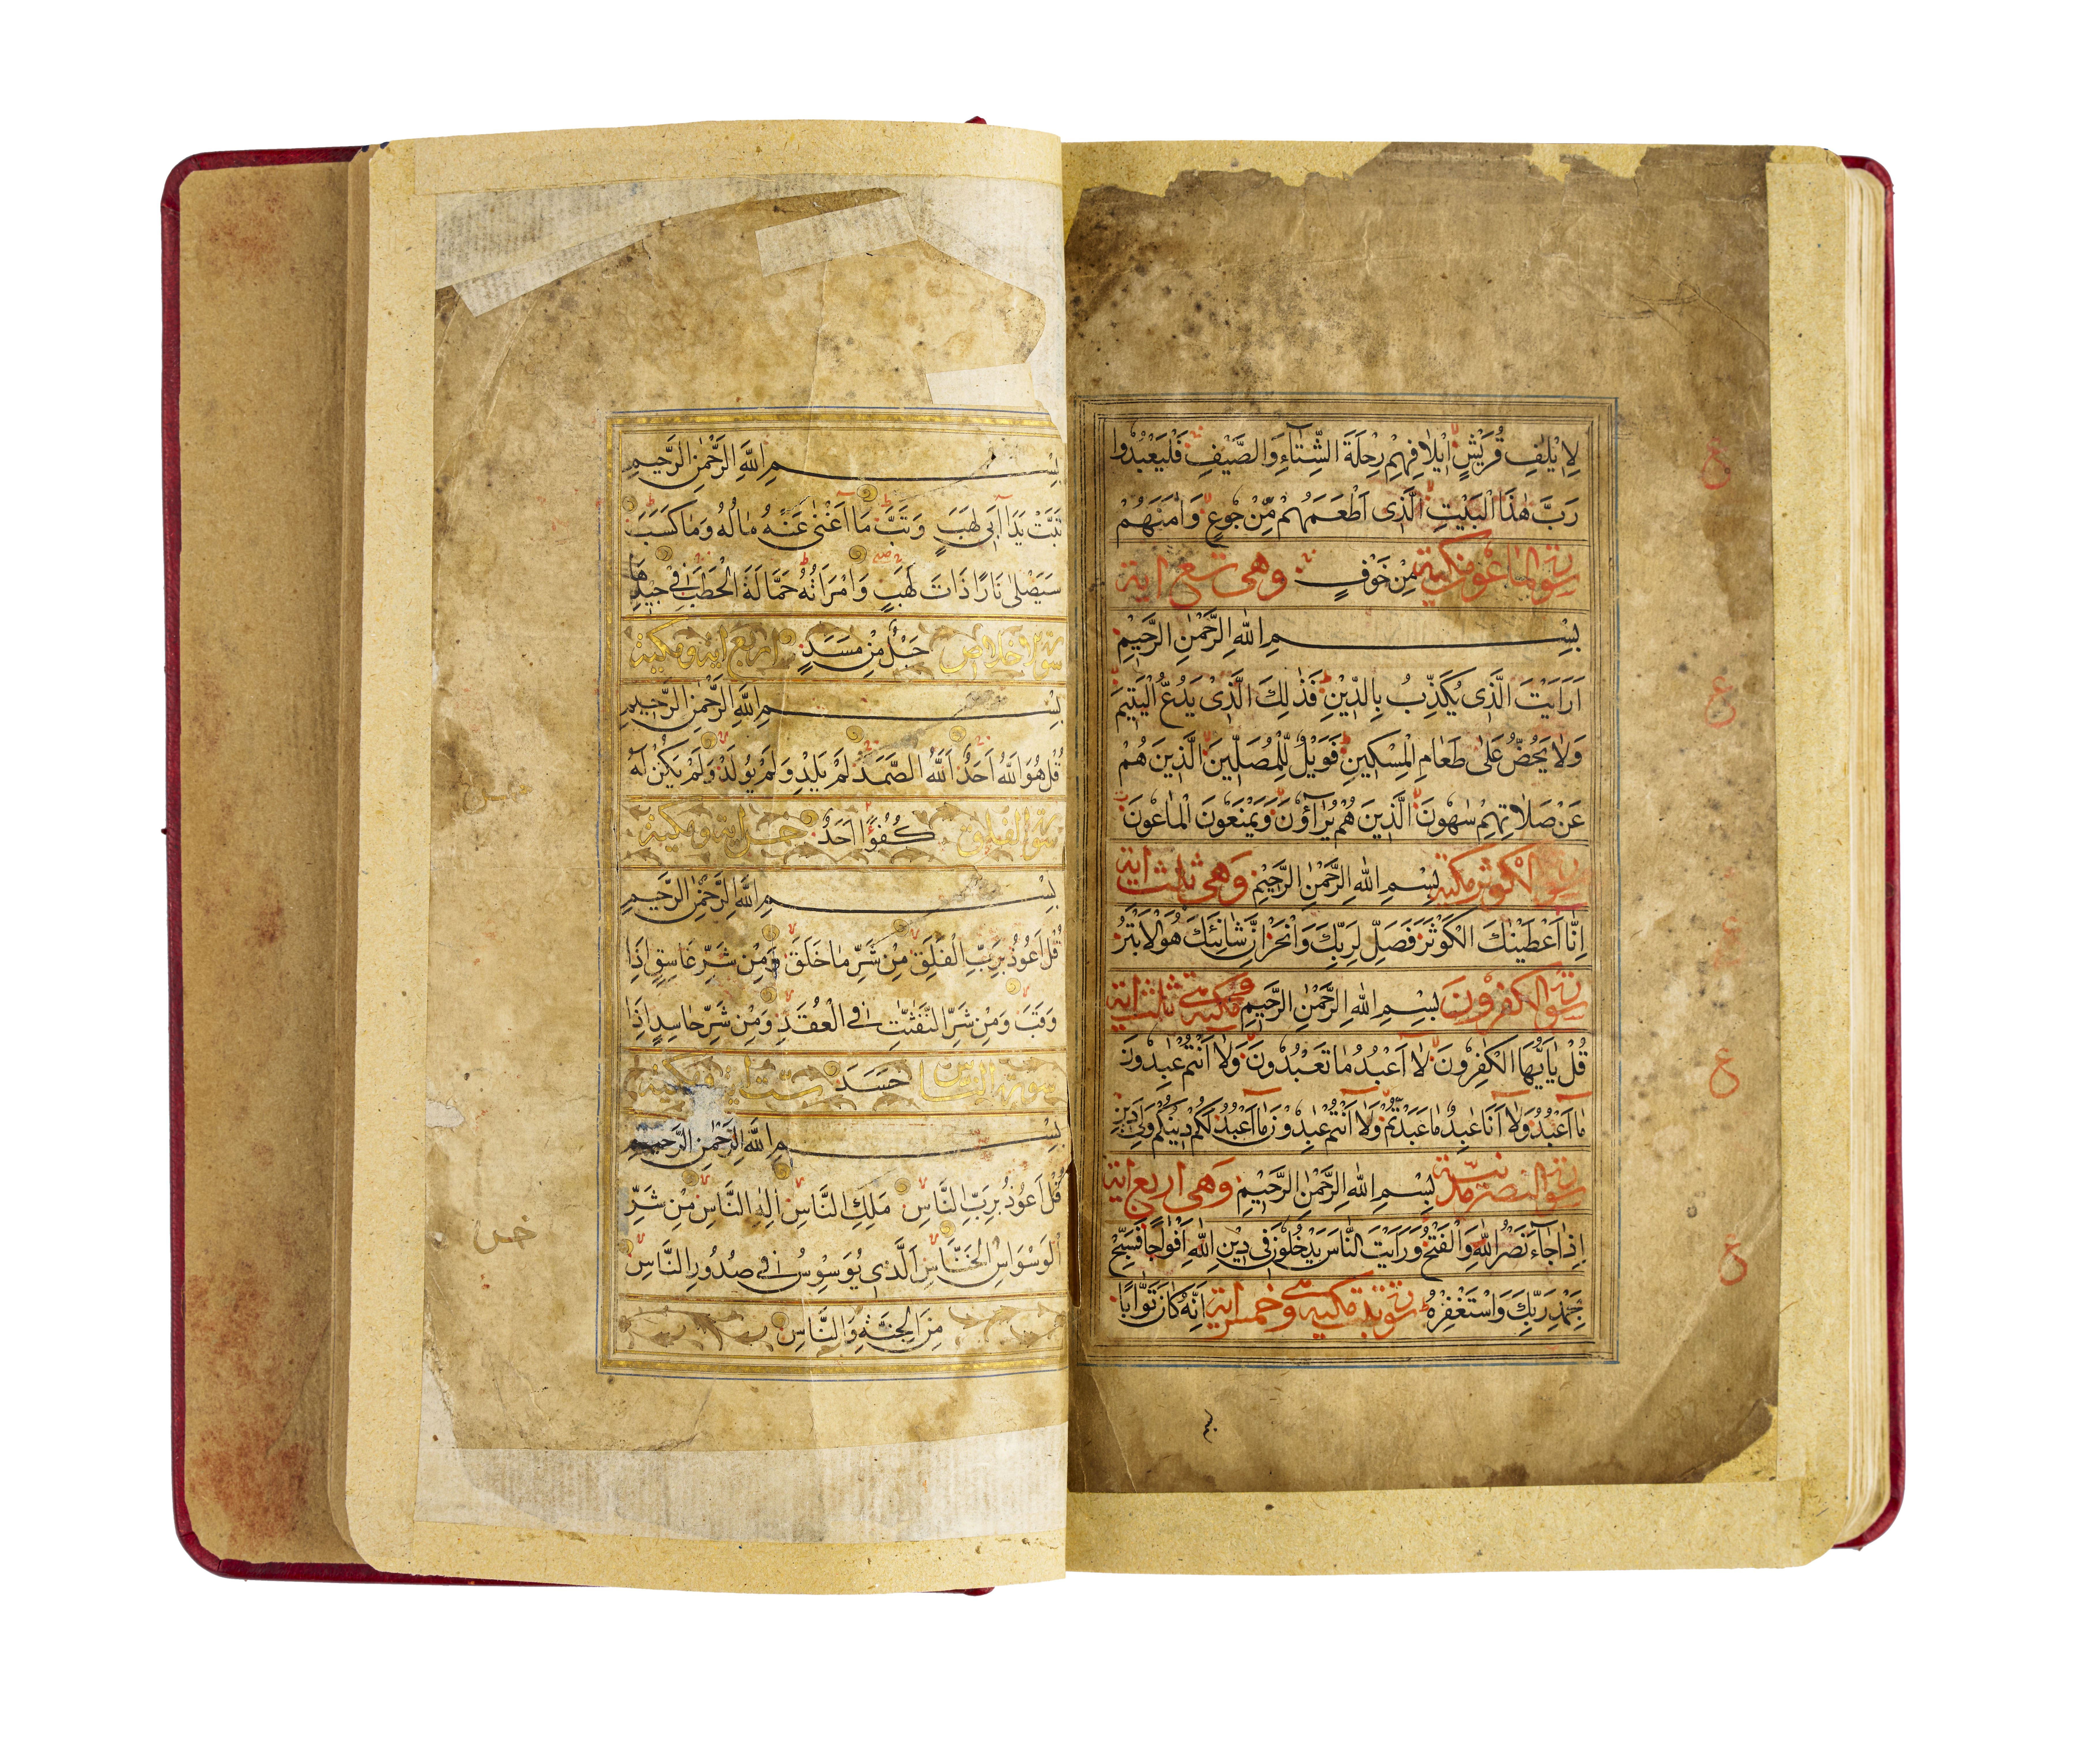 لِاِيْلٰفِ قُرَيْشٍ اٖيْلَافِهِمْ رِحْلَةَ الشِّتَآءِ وَالصَّيْفِ فَلْيَعْبُدُوا
رَبَّ هٰذَا الْبَيْتِ الَّذِى اَطْعَمَهُمْ مِّنْ جُوْعٍ وَاٰمَنَهُمْ
سورة الماعون مكية مِنْ خَوْفٍ وهى سبع اية
بِسْمِ اللهِ الرَّحْمٰنِ الرَّحِيْمِ
اَرَاَيْتَ الَّذِى يُكَذِّبُ بِالدِّيْنِ فَذٰلِكَ الَّذِىْ يَدُعُّ الْيَتِيْمَ
وَلَا يَحُضُّ عَلٰى طَعَامِ الْمِسْكِيْنِ فَوَيْلٌ لِّلْمُصَلِّيْنَ الَّذِيْنَ هُمْ
عَنْ صَلَاتِهِمْ سَاهُوْنَ الَّذِيْنَ هُمْ يُرَآؤُنَ وَيَمْنَعُوْنَ الْمَاعُوْنَ
سورة الكوثر مكية بِسْمِ اللهِ الرَّحْمٰنِ الرَّحِيْمِ وهى ثلث اية
اِنَّا اَعْطَيْنٰكَ الْكَوْثَرَ فَصَلِّ لِرَبِّكَ وَانْحَرْ اِنَّ شَانِئَكَ هُوَ الْاَبْتَرُ
سورة الكفرون بِسْمِ اللهِ الرَّحْمٰنِ الرَّحِيْمِ وهى مكية ثلث اية
قُلْ يٰاَيُّهَا الْكٰفِرُوْنَ لَا اَعْبُدُ مَا تَعْبُدُوْنَ وَلَا اَنْتُمْ عٰبِدُوْنَ
مَا اَعْبُدُ وَلَا اَنَا عَابِدٌ مَا عَبَدْتُّمْ وَلَا اَنْتُمْ عٰبِدُوْنَ مَا اَعْبُدُ لَكُمْ دِيْنُكُمْ وَلِىَ دِيْنِ
سورة النصر مدنية بِسْمِ اللهِ الرَّحْمٰنِ الرَّحِيْمِ وهى اربع اية
اِذَا جَآءَ نَصْرُ اللهِ وَالْفَتْحُ وَرَاَيْتَ النَّاسَ يَدْخُلُوْنَ فِى دِيْنِ اللهِ اَفْوَاجًا فَسَبِّحْ
بِحَمْدِ رَبِّكَ وَاسْتَغْفِرْهُ سورة تبت مكية وهى خمس اية اِنَّهُ كَانَ تَوَّابًا
بِسْمِ اللهِ الرَّحْمٰنِ الرَّحِيْمِ
تَبَّتْ يَدَا اَبِى لَهَبٍ وَتَبَّ مَا اَغْنٰى عَنْهُ مَالُهُ وَمَا كَسَبَ
سَيَصْلٰى نَارًا ذَاتَ لَهَبٍ وَامْرَاَتُهُ حَمَّالَةَ الْحَطَبِ فِىْ جِيْدِهَا
سورة الاخلاص حَبْلٌ مِّنْ مَسَدٍ اربع اية ومكية
بِسْمِ اللهِ الرَّحْمٰنِ الرَّحِيْمِ
قُلْ هُوَ اللهُ اَحَدٌ اَللهُ الصَّمَدُ لَمْ يَلِدْ وَلَمْ يُوْلَدْ وَلَمْ يَكُنْ لَهُ
سورة الفلق كُفُوًا اَحَدٌ خمس اية ومكية
بِسْمِ اللهِ الرَّحْمٰنِ الرَّحِيْمِ
قُلْ اَعُوْذُ بِرَبِّ الْفَلَقِ مِنْ شَرِّ مَا خَلَقَ وَمِنْ شَرِّ غَاسِقٍ اِذَا
وَقَبَ وَمِنْ شَرِّ النَّفّٰثٰتِ فِى الْعُقَدِ وَمِنْ شَرِّ حَاسِدٍ اِذَا
سورة الناس حَسَدَ ست اية ومكية
بِسْمِ اللهِ الرَّحْمٰنِ الرَّحِيْمِ
قُلْ اَعُوْذُ بِرَبِّ النَّاسِ مَلِكِ النَّاسِ اِلٰهِ النَّاسِ مِنْ شَرِّ
الْوَسْوَاسِ الْخَنَّاسِ الَّذِى يُوَسْوِسُ فِى صُدُوْرِ النَّاسِ
مِنَ الْجِنَّةِ وَالنَّاسِ